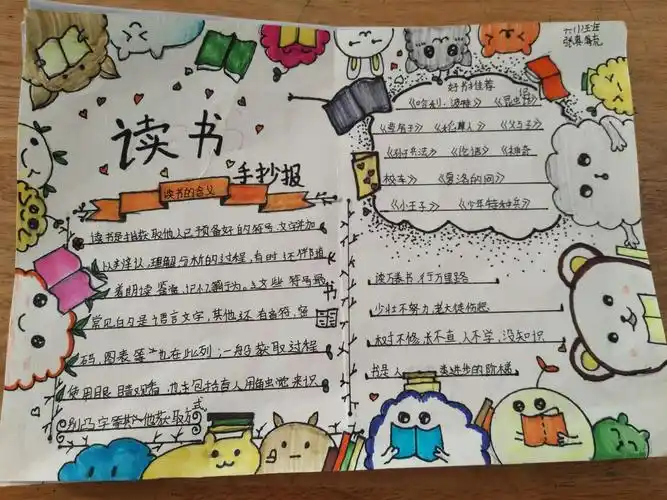 读书
手抄报
读书的含义
读书是指获取他人已预备好的符号、文字并加
以辨认、理解、分析的过程，有时还伴随
着朗读、鉴赏、记忆等行为。这些符号最
常见的是语言文字，其他还有音符、密
码、图表等也在此列；一般获取过程
使用眼睛观看，也包括盲人用触觉来识
别盲字等其他获取方
式
好书推荐
《哈利·波特》《昆虫记》
《稻草人》《父与子》
《孙子兵法》《论语》《神奇
校车》《夏洛的网》
《小王子》《少年特种兵》
读万卷书，行万里路
少壮不努力，老大徒伤悲
树不修，长不直；人不学，没知识
书是人类进步的阶梯